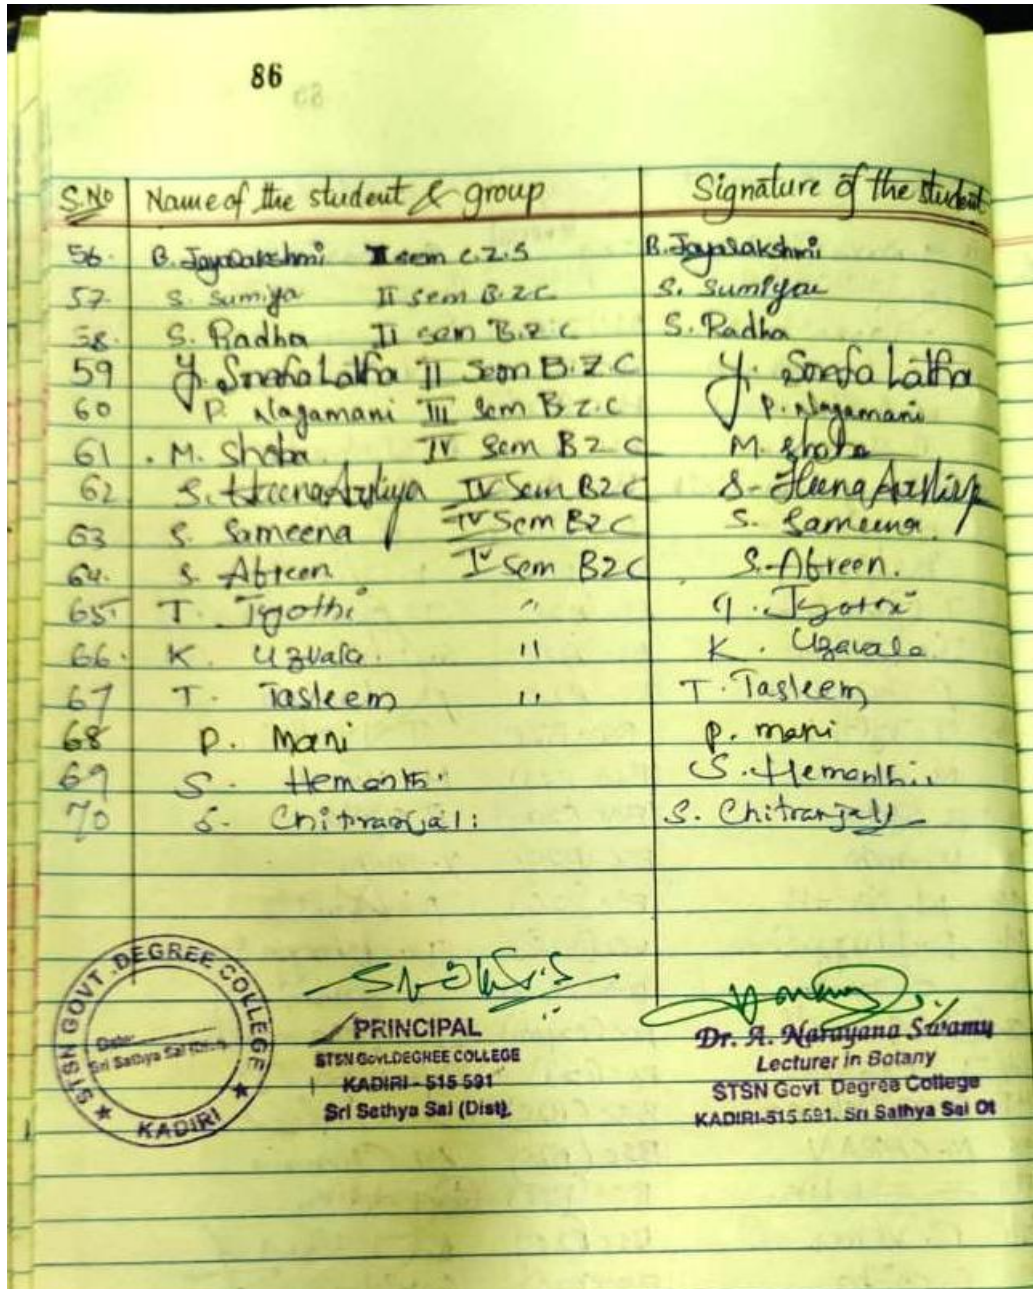 86
S.No Name of the student & group Signature of the student
56. B. Jayalakshmi II sem C.Z.S B. Jayalakshmi
57. S. Sumiya II sem B.Z.C S. Sumiya
58. S. Radha II sem B.Z.C S. Radha
59 Y. Sneha Latha II Sem B.Z.C Y. Sneha Latha
60 P. Nagamani III Sem B.Z.C P. Nagamani
61 . M. Shoba IV Sem BZC M. Shoba
62. S. Heena IV Sem BZC S- Heena
63 S. Sameena IV Sem BZC S. Sameena.
64. S. Afreen IV Sem BZC S. Afreen.
65. T. Jyothi " T. Jyothi
66. K. Uzvala. " K. Uzavala
67 T. Tasleem " T. Tasleem
68 P. Mani P. mani
69 S. Hemanthi S. Hemanthi
70 S. Chitranjali S. Chitranjali
STSN GOVT. DEGREE COLLEGE
Date:
Sri Sathya Sai (Dist).
★ KADIRI ★
PRINCIPAL
STSN Govt.DEGREE COLLEGE
KADIRI - 515 591
Sri Sathya Sai (Dist).
Dr. A. Narayana Swamy
Lecturer in Botany
STSN Govt Degree College
KADIRI-515 591. Sri Sathya Sai Dt